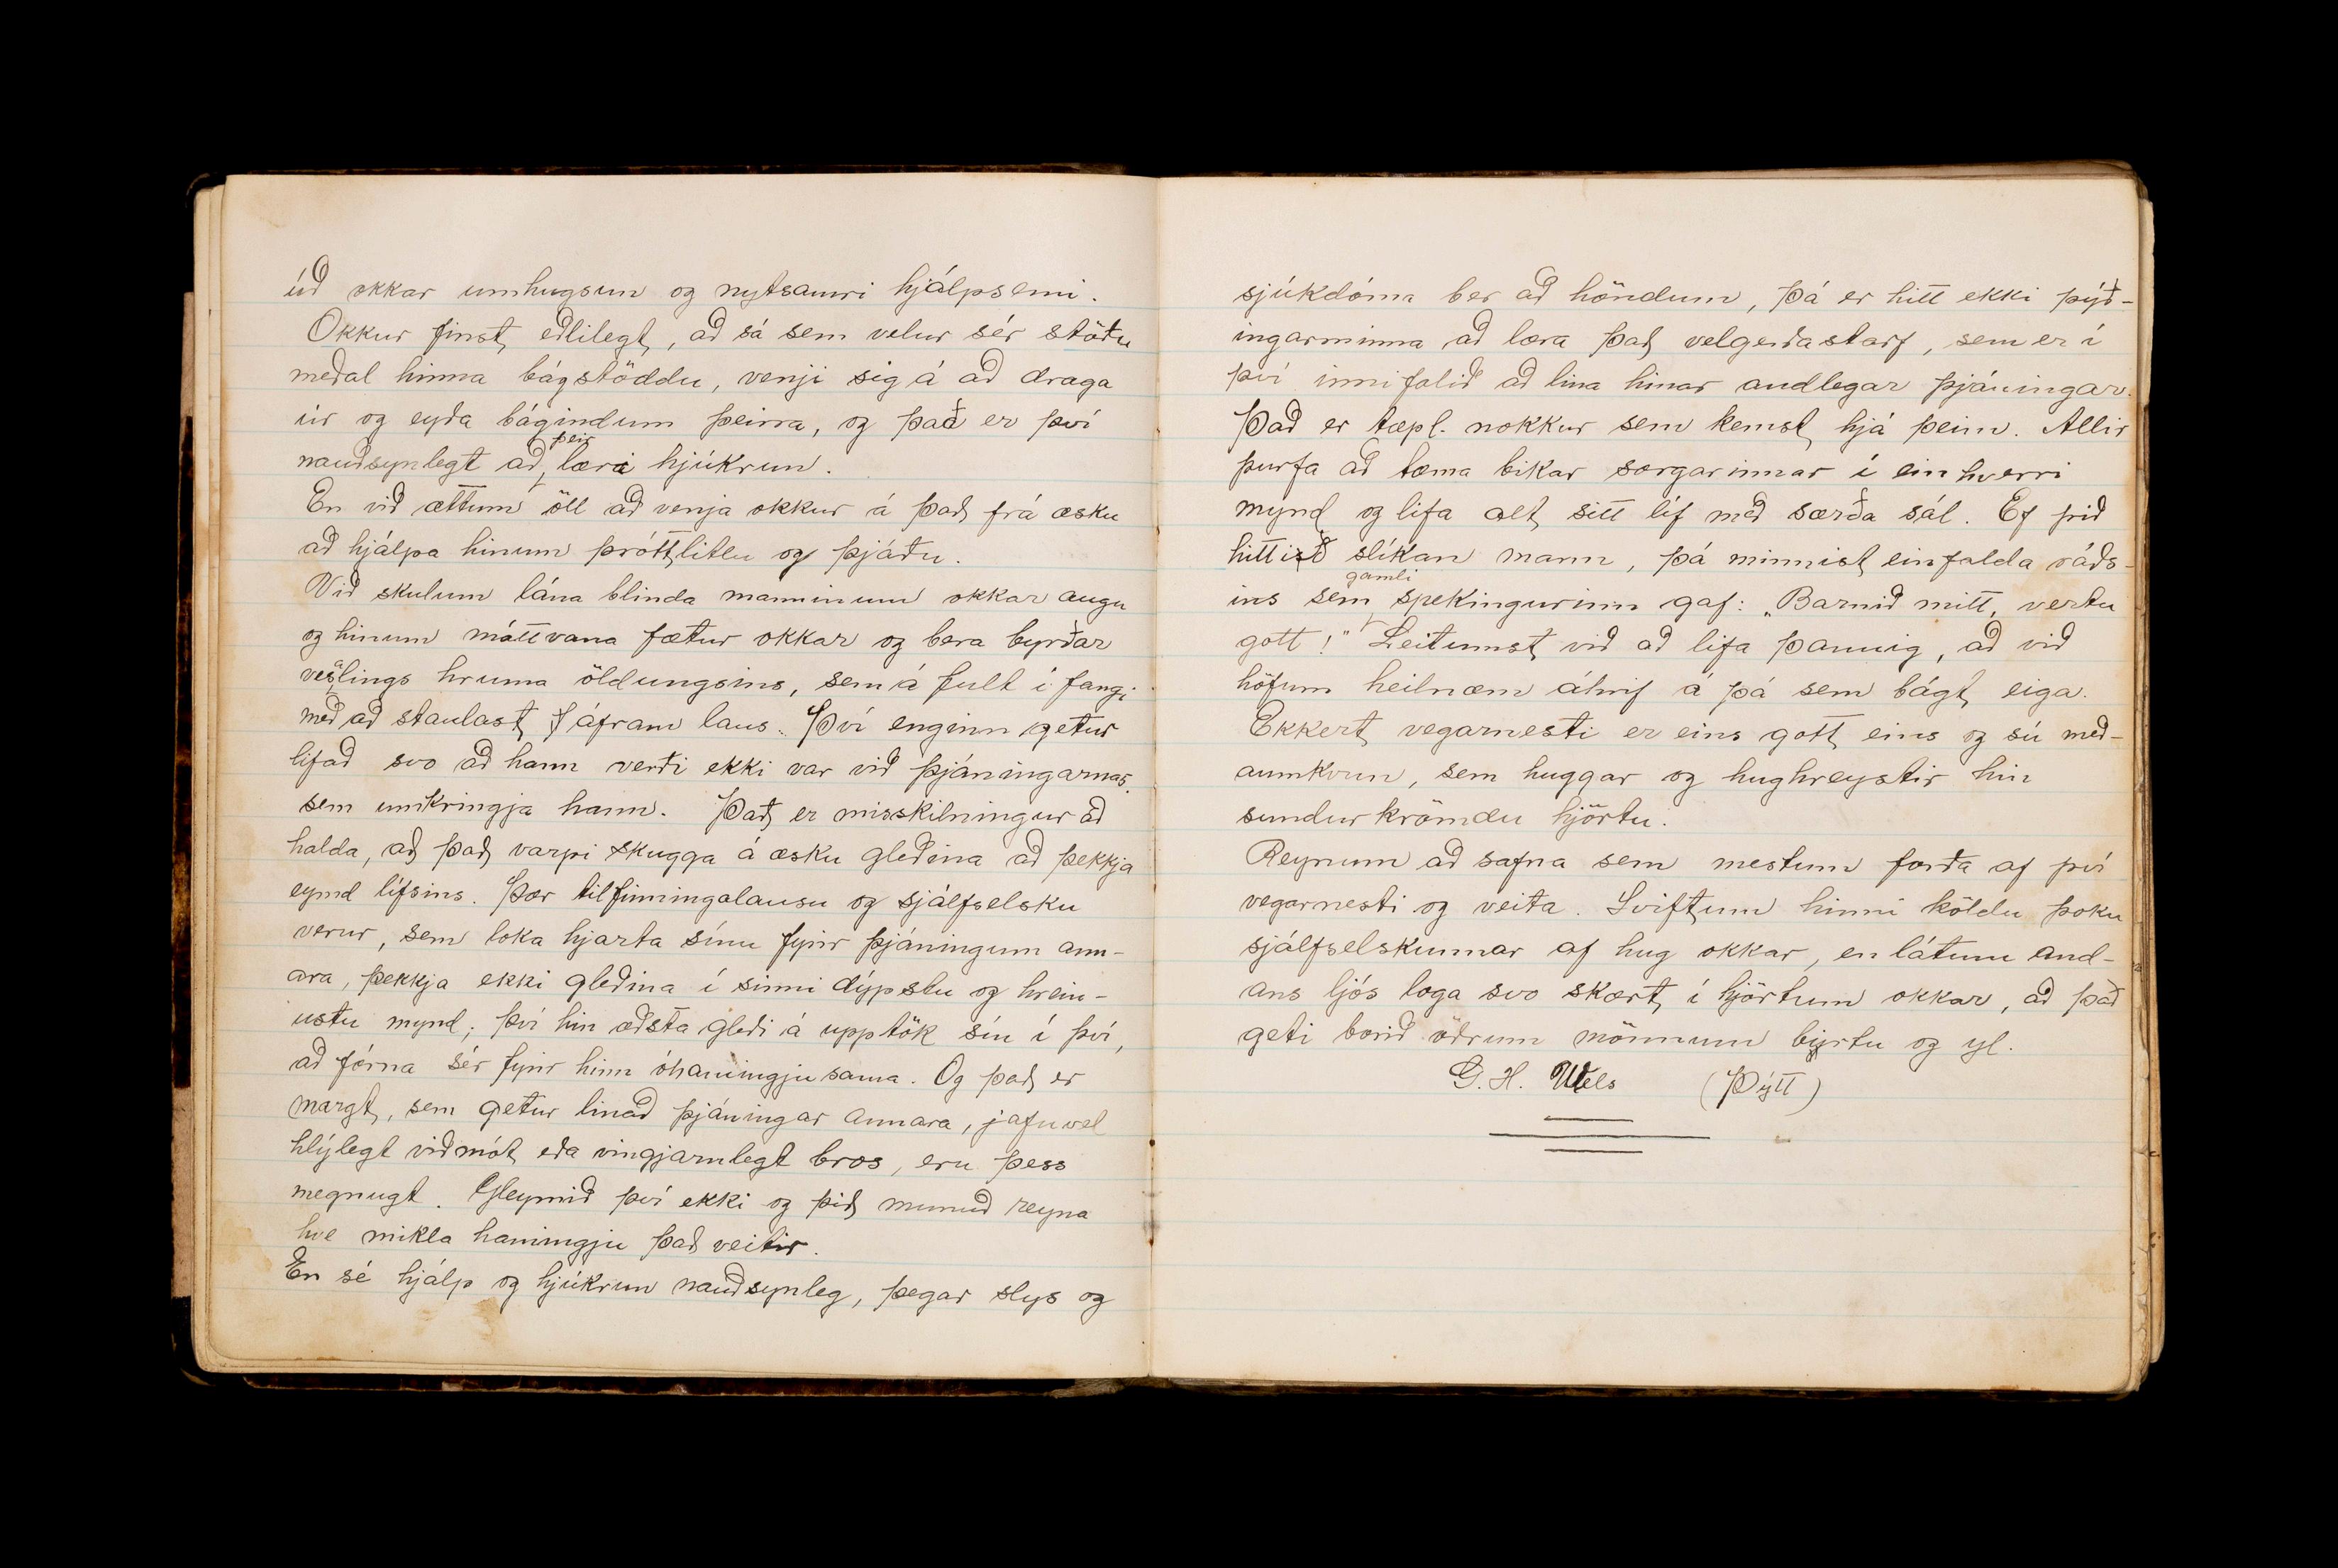 úð okkar umhugsun og nytsamri hjálpsemi.
Okkur finst eðlilegt, að sá sem velur sér stöðu
meðal hinna bágstöddu, venji sig á að draga
úr og eyða bágindum þeirra, og það er því
þeir
nauðsynlegt að læri hjúkrun.
En við ættum öll að venja okkur á það frá æsku
að hjálpa hinum þróttlitlu og þjáðu.
Við skulum lána blinda manninum okkar augu
og hinum máttvana fætur okkar og bera byrðar
veslings hruma öldungsins, sem á fult í fangi
með að staulast áfram laus. Því enginn getur
lifað svo að hann verði ekki var við þjáningarnar
sem umkringja hann. Það er misskilningur að
halda, að það varpi skugga á æsku gleðina að þekkja
eymd lífsins. Þær tilfinningalausu og sjálfselsku
verur, sem loka hjarta sínu fyrir þjáningum ann-
ara, þekkja ekki gleðina í sinni dýpstu og hrein-
ustu mynd; því hin æðsta gleði á upptök sín í því,
að fórna sér fyrir hinn óhamingjusama. Og það er
margt, sem getur linað þjáningar annara, jafnvel
hlýlegt viðmót eða vingjarnlegt bros, eru þess
megnugt. Gleymið því ekki og þið munuð reyna
hve mikla hamingju það veitir.
En sé hjálp og hjúkrun nauðsynleg, þegar slys og
sjúkdóma ber að höndum, þá er hitt ekki þýð-
ingarminna að læra það velgerðastarf, sem er í
því innifalið að lina hinar andlegar þjáningar.
Það er tæpl. nokkur sem kemst hjá þeim. Allir
þurfa að tæma bikar sorgarinnar í einhverri
mynd og lifa alt sitt líf með særða sál. Ef þið
hittið slíkan mann, þá minnist einfalda ráðs-
gamli
ins sem spekingurinn gaf: „Barnið mitt, vertu
gott!" Leitumst við að lifa þannig, að við
höfum heilnæm áhrif á þá sem bágt eiga.
Ekkert vegarnesti er eins gott eins og sú með-
aumkvun, sem huggar og hughreystir hin
sundurkrömdu hjörtu.
Reynum að safna sem mestum forða af því
vegarnesti og veita. Sviftum hinni köldu þoku
sjálfselskunnar af hug okkar, en látum and-
ans ljós loga svo skært í hjörtum okkar, að það
geti borið öðrum mönnum birtu og yl.
G. H. Wels (Þýtt)